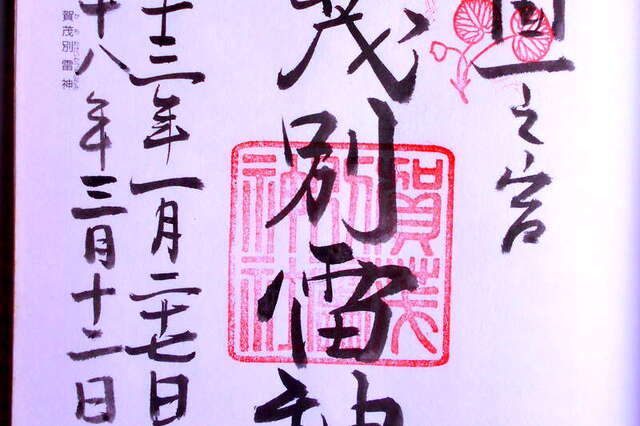 国一之宮
茂別雷神
賀茂別雷神社
十三年一月二十七日
十八年三月十二日
賀茂別雷神